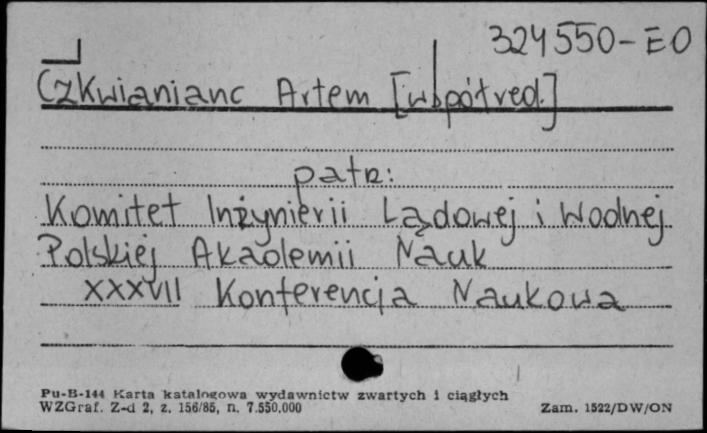 324550-EO
Czkwianianc Artem [współred.]
patrz:
Komitet Inżynierii Lądowej i Wodnej
Polskiej Akademii Nauk
XXXVII Konferencja Naukowa
Pu-B-144 Karta katalogowa wydawnictw zwartych i ciągłych
WZGraf. Z-d 2, z. 156/85, n. 7.550.000
Zam. 1522/DW/ON